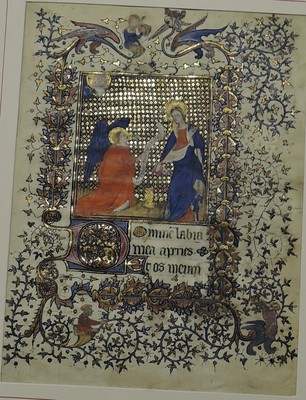 Domine labia
mea apries
et os meum